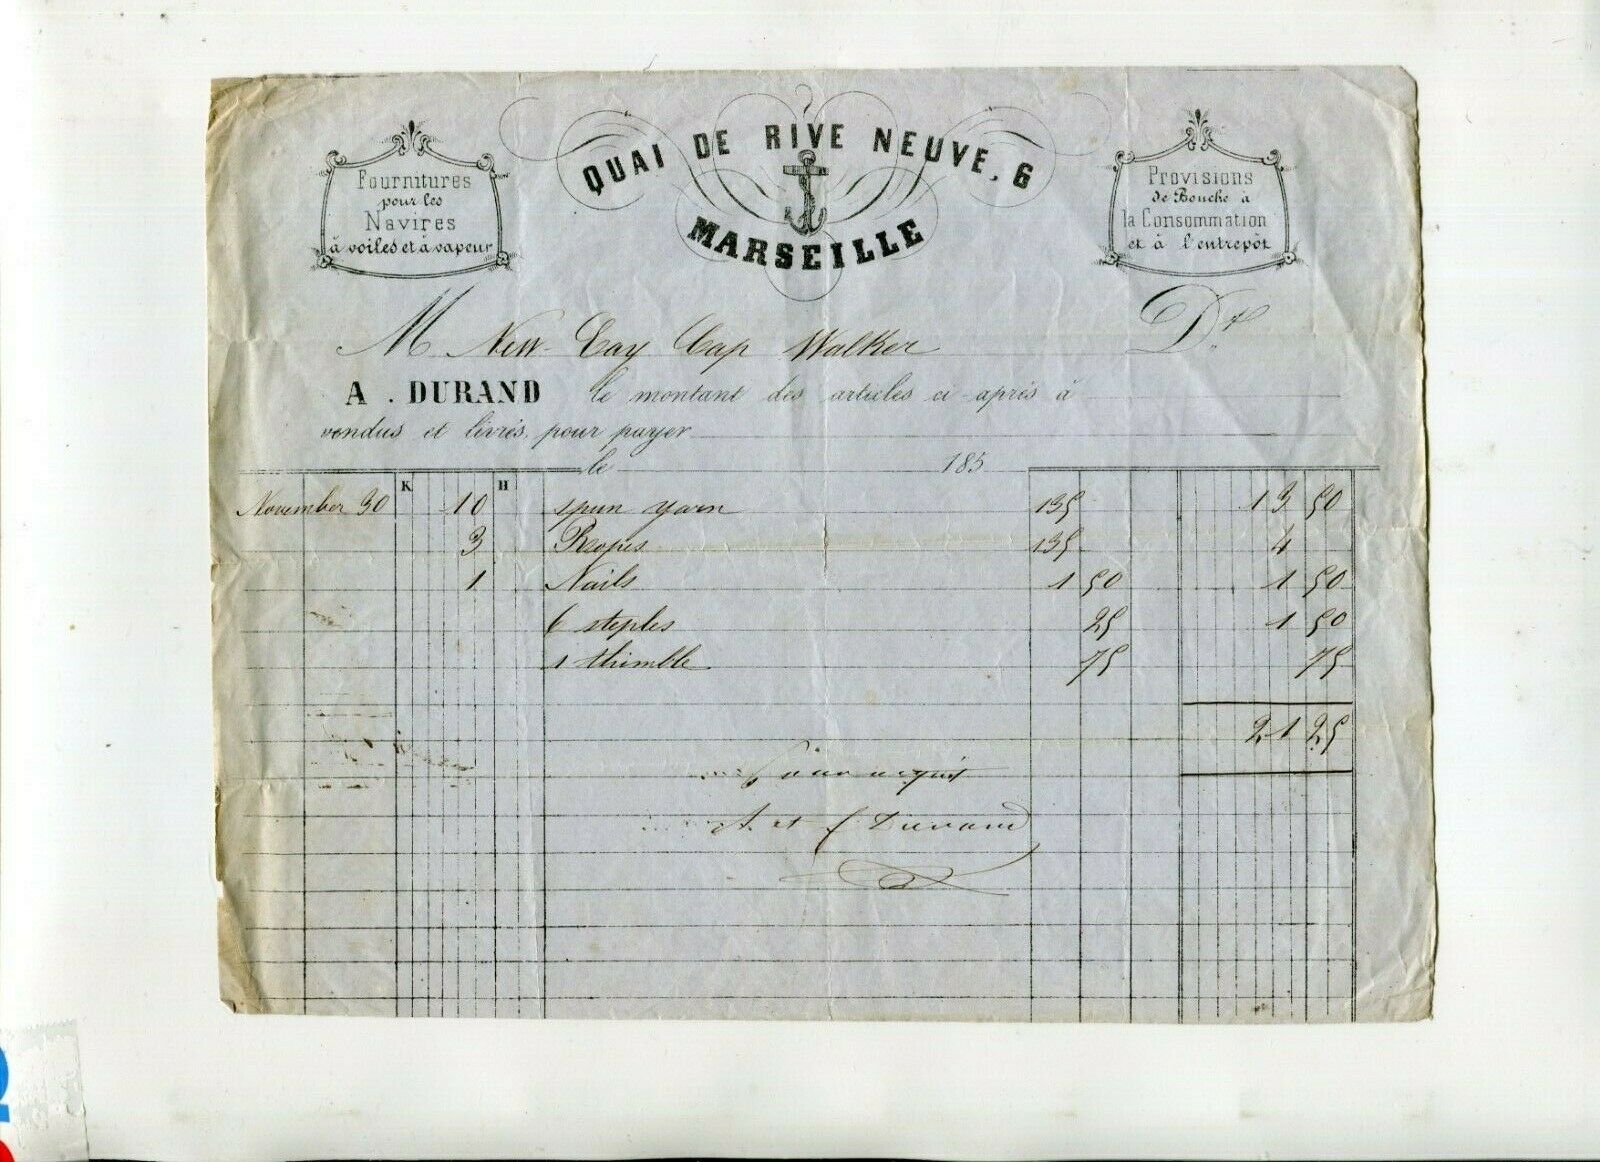 QUAI DE RIVE NEUVE, 6
MARSEILLE
Fournitures
pour les
Navires
à voiles et à vapeur
Provisions
de Bouche à
la Consommation
et à l'entrepôt
M New-Cay Cap Walker Dt
A. DURAND le montant des articles ci-après à
vendus et livrés, pour payer
le 185
K H
November 30 10 spun yarn 135 13 50
3 Ropes 135 4
1 Nails 1 50 1 50
6 steples 25 1 50
1 thimble 75 75
21 25
Pour acquit
A. et f Durand